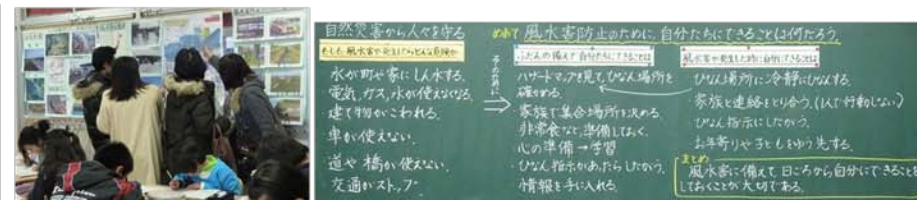 自然災害から人々を守る
もしも風水害が発生したらどんな危険が
水が町や家にしん水する。
電気、ガス、水が使えなくなる。
建て物がこわれる。
車が使えない。
道や橋が使えない。
交通がストップ。
めあて 風水害防止のために、自分たちにできることは何だろう。
ふだんの備えで自分たちにできることは
ハザードマップを見て、ひなん場所を
確かめる。
家族で集合場所を決める。
非常食など準備しておく。
心の準備→学習
ひなん指示があったらしたがう。
情報を手に入れる。
風水害が発生した時に自分にできることは
ひなん場所に冷静にひなんする。
家族と連絡をとり合う。(1人で行動しない)
ひなん指示にしたがう。
お年寄りや子どもをゆう先する。
まとめ
風水害に備えて、日ごろから自分にできることを
しておくことが大切である。